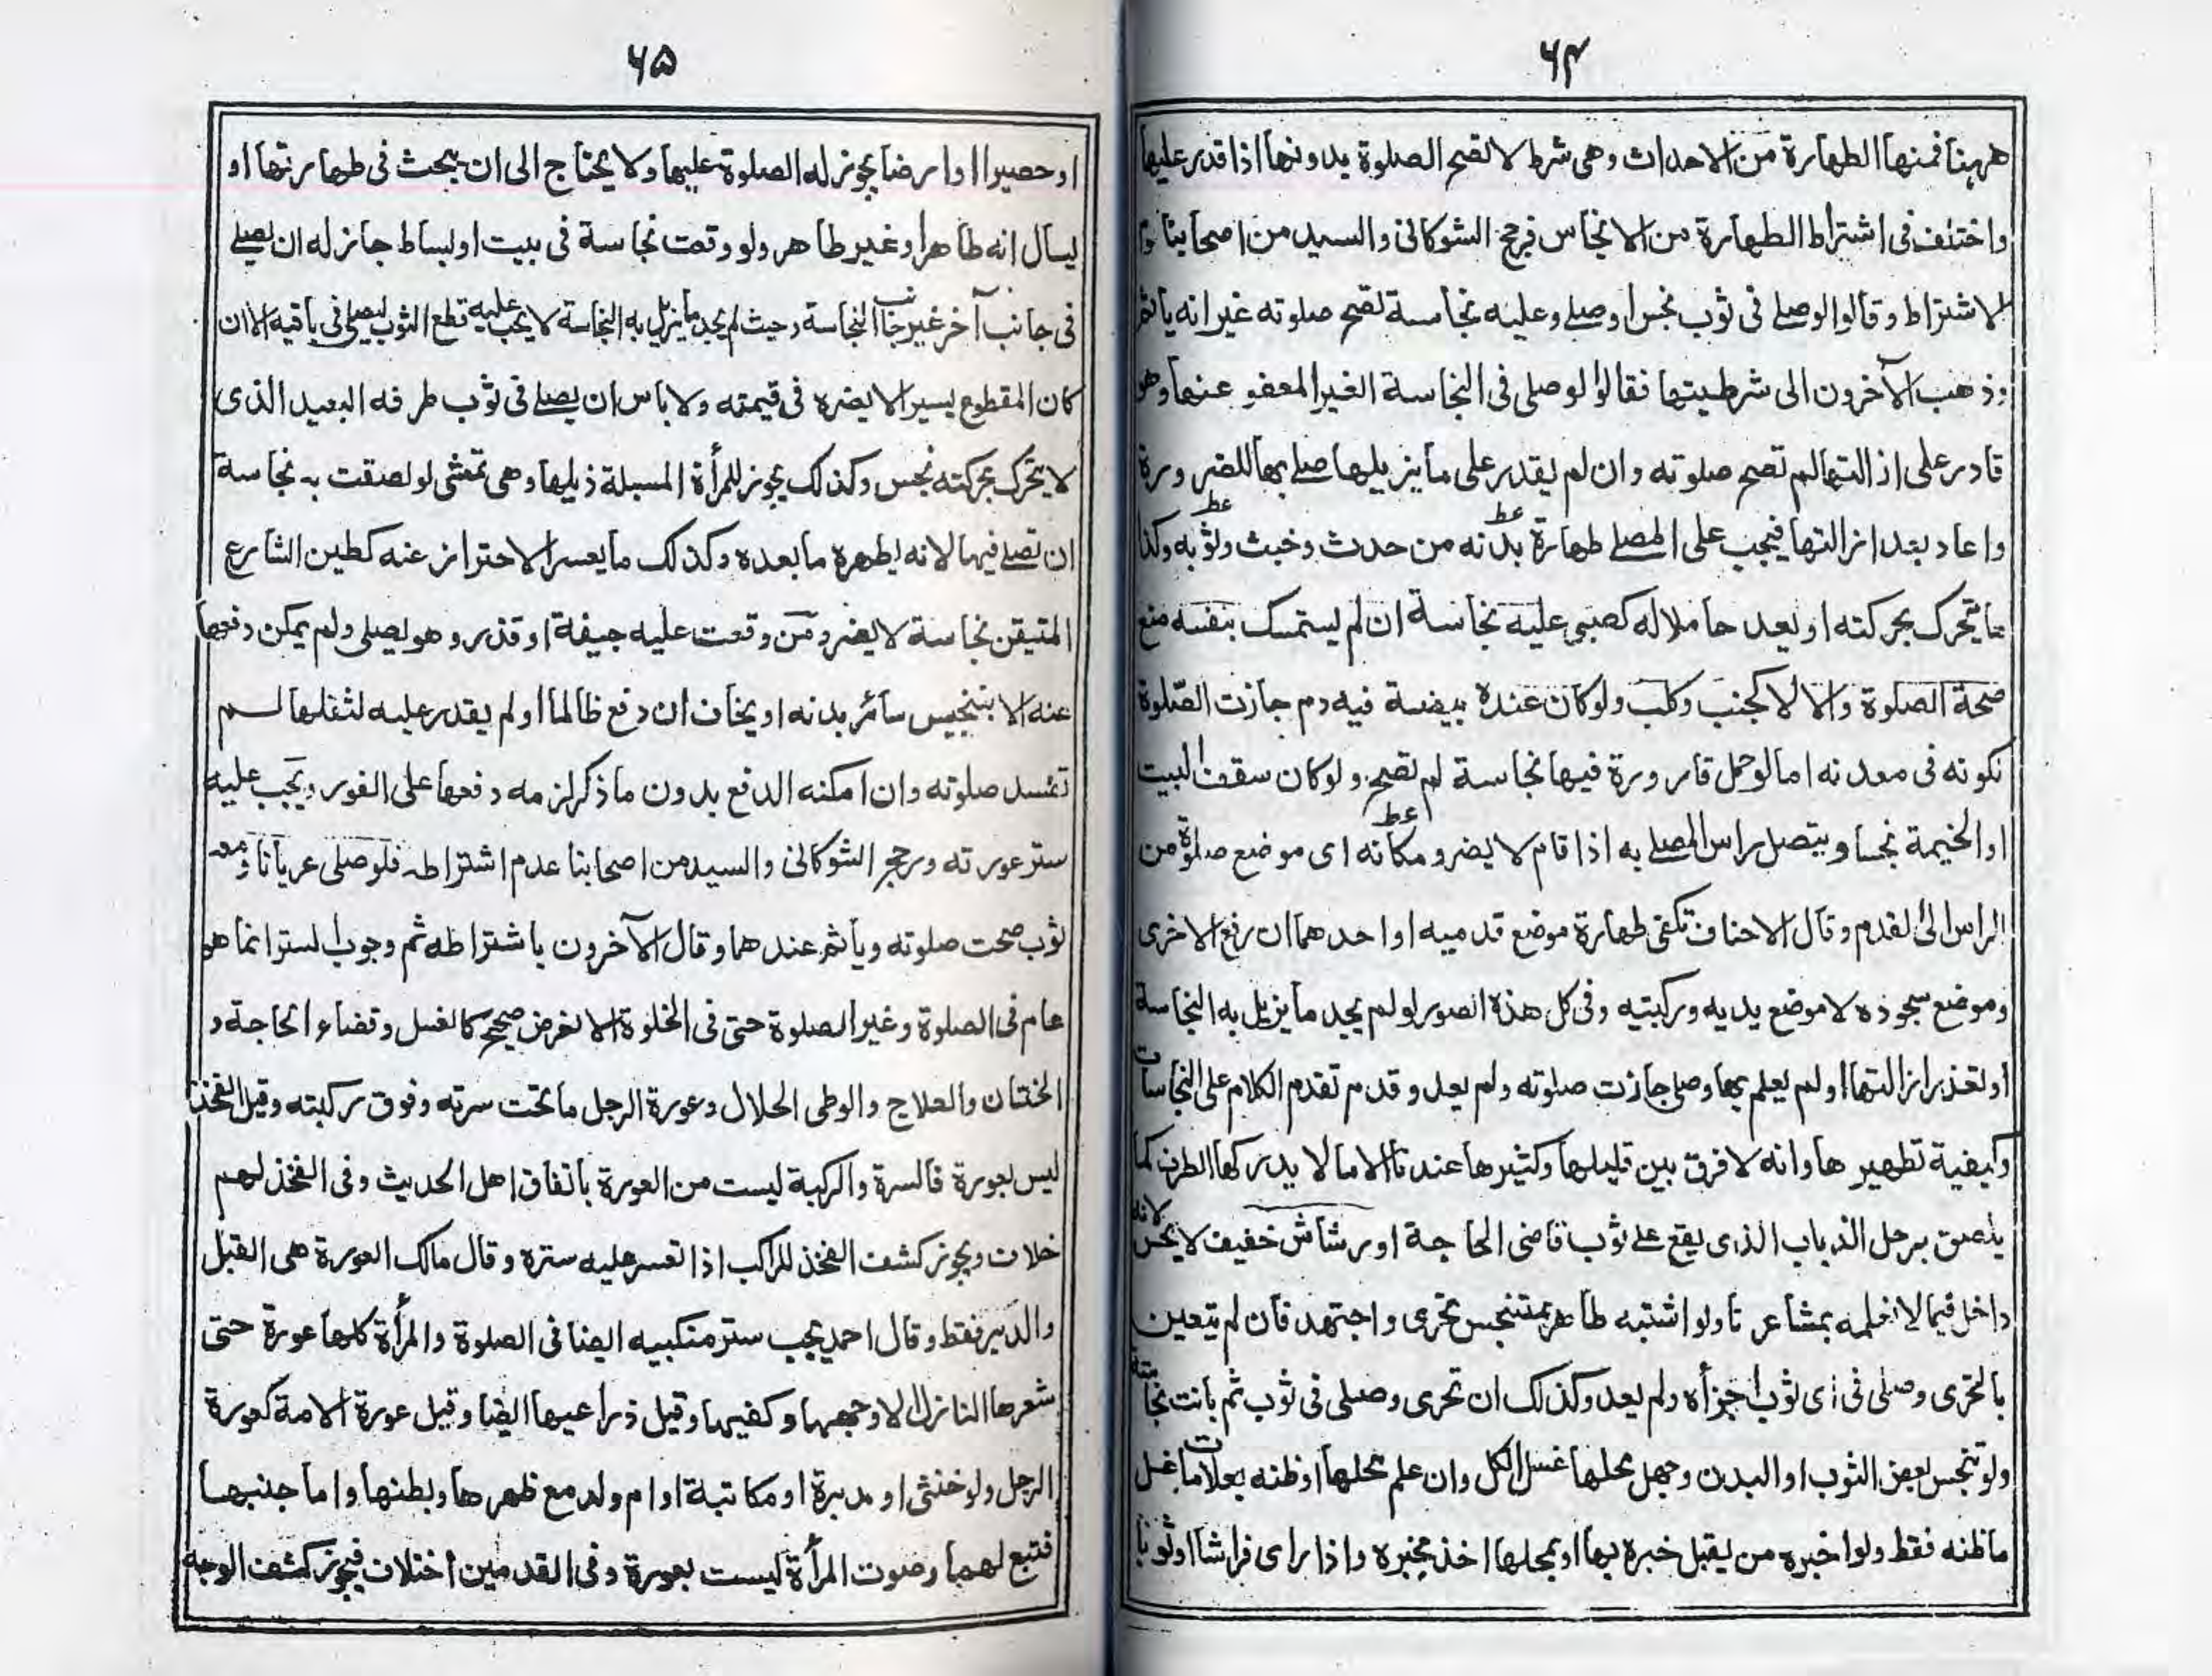 ۶۴
ههنا فمنها الطهارة من الاحداث وهی شرط لا تصح الصلوة بدونها اذا قدر علیها
واختلف فی اشتراط الطهارة من الانجاس فرجح الشوکانی والسید من اصحابنا
الاشتراط وقالوا لو صلے فی ثوب نجس او صلے وعلیه نجاسة تصح صلوته غیر انه یاثم
وذهب الآخرون الی شرطیتها فقالوا لو صلی فی النجاسة الغیر المعفو عنها وهو
قادر علی ازالتها لم تصح صلوته وان لم یقدر علی ما یزیلها صلے بها للضرورة
واعاد بعد ازالتها فیجب علی المصلے طهارة بدنه من حدث وخبث وثوبه وکذا
ما یتحرک بحرکته او یعد حاملا له کصبی علیه نجاسة ان لم یستمسک بنفسه منع
صحة الصلوة والا لا کجنب وکلب ولو کان عنده بیضة فیه دم جازت الصلوة
لکونه فی معدنه اما لو حمل قارورة فیها نجاسة لم تصح ولو کان سقف البیت
او الخیمة نجسا ویتصل راس المصلے به اذا قام لا یضر ومکانه ای موضع صلوة من
الراس الی القدم وقال الاحناف تکفی طهارة موضع قدمیه او احدهما ان رفع الاخری
وموضع سجوده لا موضع یدیه ورکبتیه وفی کل هذه الصور لو لم یجد ما یزیل به النجاسة
او تعذر ازالتها او لم یعلم بها وصلی جازت صلوته ولم یعد وقدم تقدم الکلام علی النجاسات
وکیفیة تطهیرها وانه لا فرق بین قلیلها وکثیرها عندنا الا ما لا یدرکها الطرف کما
یلصق برجل الذباب الذی یقع علے ثوب قاضی الحاجة او رشاش خفیف لا یحس لانه
داخل فیما لا نعلمه بمشاعرنا ولو اشتبه طاهر بمتنجس تحری واجتهد فان لم یتعین
بالتحری وصلی فی ای ثوب اجزأه ولم یعد وکذلک ان تحری وصلی فی ثوب ثم بانت نجاسته
ولو تنجس بعض الثوب او البدن وجهل محلها غسل الکل وان علم محلها او ظنه بعلامات غسل
ما ظنه فقط ولو اخبره من یقبل خبره بها او بمحلها اخذ بخبره واذا رای فراشا او ثوبا
۶۵
او حصیرا او ارضا یجوز له الصلوة علیها ولا یحتاج الی ان یبحث فی طهارتها او
یسأل انه طاهر او غیر طاهر ولو وقعت نجاسة فی بیت او بساط جاز له ان یصلے
فی جانب آخر غیر جانب النجاسة وحیث لم یجد ما یزیل به النجاسة لا یجب علیه قطع الثوب لیصلی فی باقیه الا ان
کان المقطوع یسیرا لا یضره فی قیمته ولا باس ان یصلے فی ثوب طرفه البعید الذی
لا یتحرک بحرکته نجس وکذلک یجوز للمرأة المسبلة ذیلها وهی تمشی لو لصقت به نجاسة
ان تصلے فیها لانه یطهره ما بعده وکذلک ما یعسر الاحتراز عنه کطین الشارع
المتیقن نجاسة لا یضر ومن وقعت علیه جیفة او قذر وهو یصلی ولم یمکن دفعها
عنه الا بتنجیس سائر بدنه او یخاف ان دفع ظالما او لم یقدر علیه لثقلها لم
تفسد صلوته وان امکنه الدفع بدون ما ذکر لزمه دفعها علی الفور ویجب علیه
ستر عورته ورجح الشوکانی والسید من اصحابنا عدم اشتراطه فلو صلی عریانا ومعه
ثوب صحت صلوته ویأثم عندهما وقال الآخرون باشتراطه ثم وجوب الستر انما هو
عام فی الصلوة وغیر الصلوة حتی فی الخلوة الا لغرض صحیح کالغسل وقضاء الحاجة و
الختان والعلاج والوطی الحلال وعورة الرجل ما تحت سرته وفوق رکبته وقیل الفخذ
لیس بعورة فالسرة والرکبة لیست من العورة باتفاق اهل الحدیث وفی الفخذ لهم
خلاف ویجوز کشف الفخذ للراکب اذا تعسر علیه ستره وقال مالک العورة هی القبل
والدبر فقط وقال احمد یجب ستر منکبیه ایضا فی الصلوة والمرأة کلها عورة حتی
شعرها النازل الا وجهها وکفیها وقیل ذراعیها ایضا وقیل عورة الامة کعورة
الرجل ولو خنثی او مدبرة او مکاتبة او ام ولد مع ظهرها وبطنها واما جنبها
فتبع لهما وصوت المرأة لیست بعورة وفی القدمین اختلاف فیجوز کشف الوجه